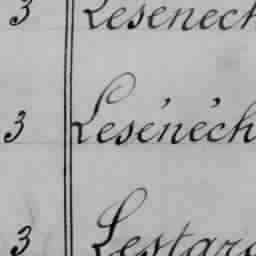 3 Lesenech
3 Lesénéch
3 Lestard